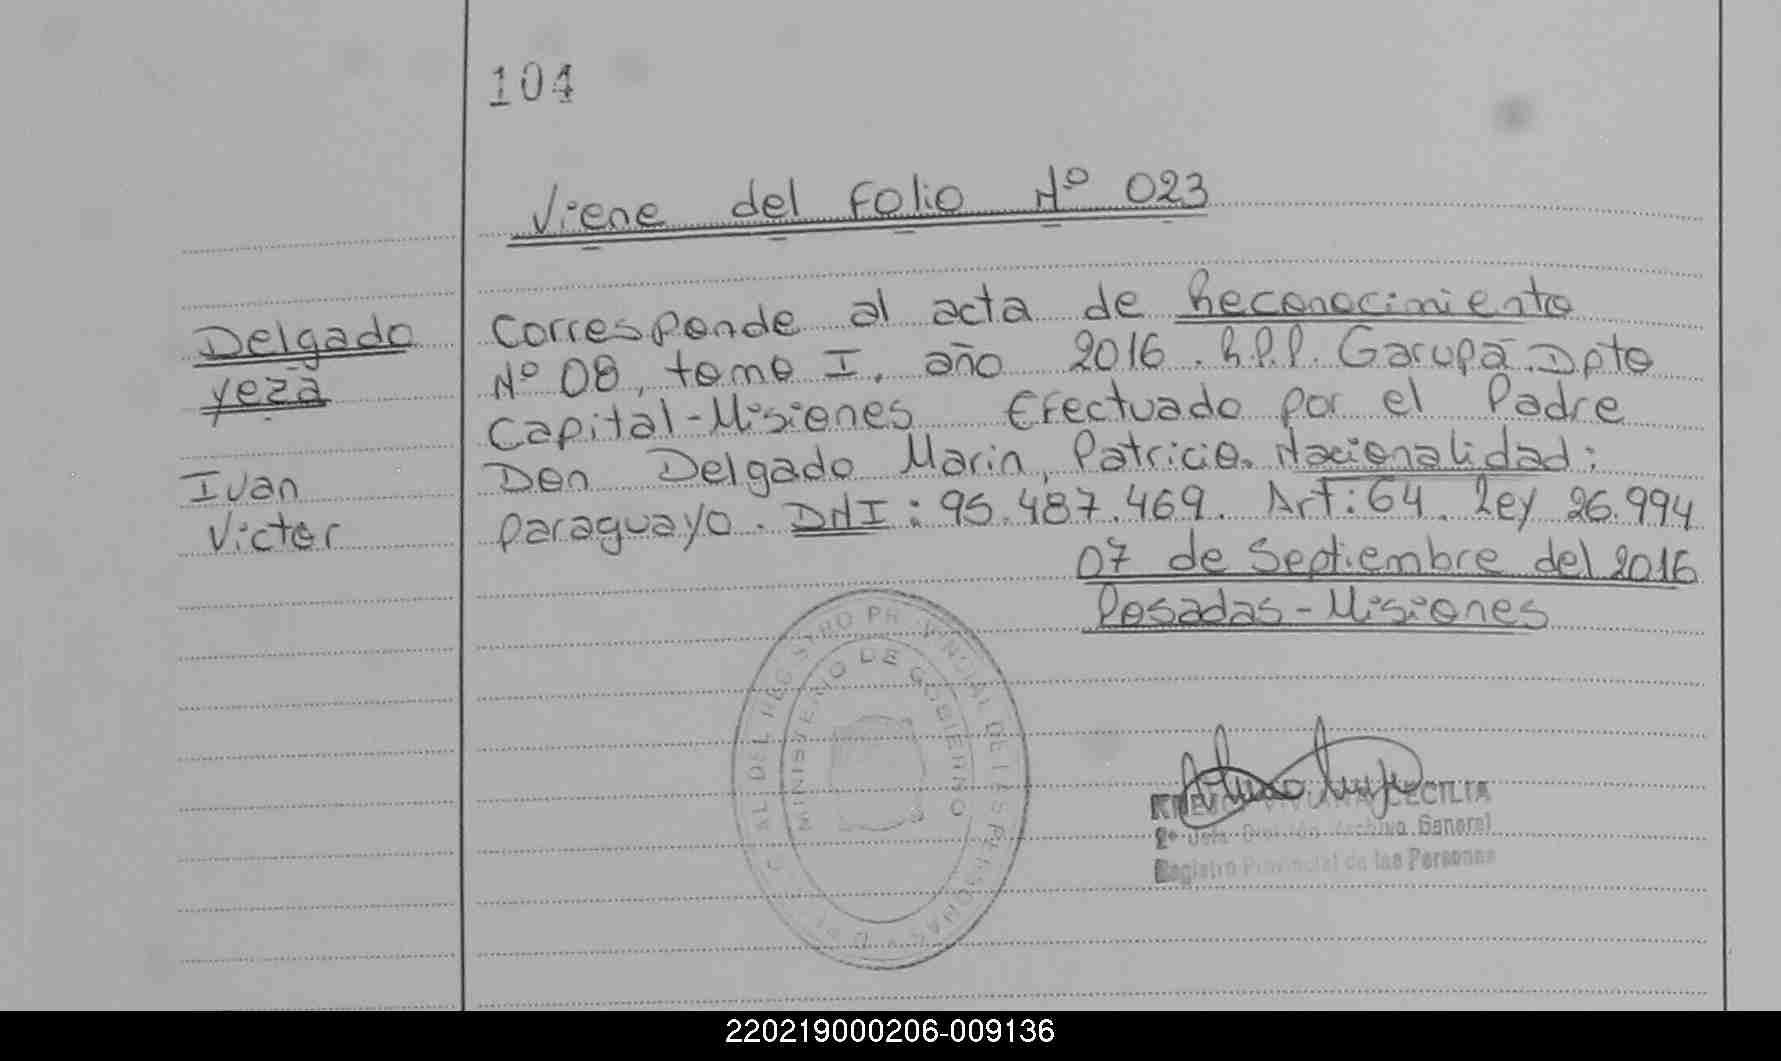 104
Viene del Folio Nº 023
Delgado
yeza
Ivan
Victor
Corresponde al acta de Reconocimiento
Nº 08, tomo I, año 2016. R.P.P. Garupá. Dpto
Capital-Misiones Efectuado por el Padre
Don Delgado Marin, Patricio. Nacionalidad:
paraguayo. DNI: 95.487.469. Art: 64. Ley 26.994
07 de Septiembre del 2016
Posadas-Misiones
MINISTERIO DE GOBIERNO
CECILIA
División Archivo General
Registro Provincial de las Personas
220219000206-009136